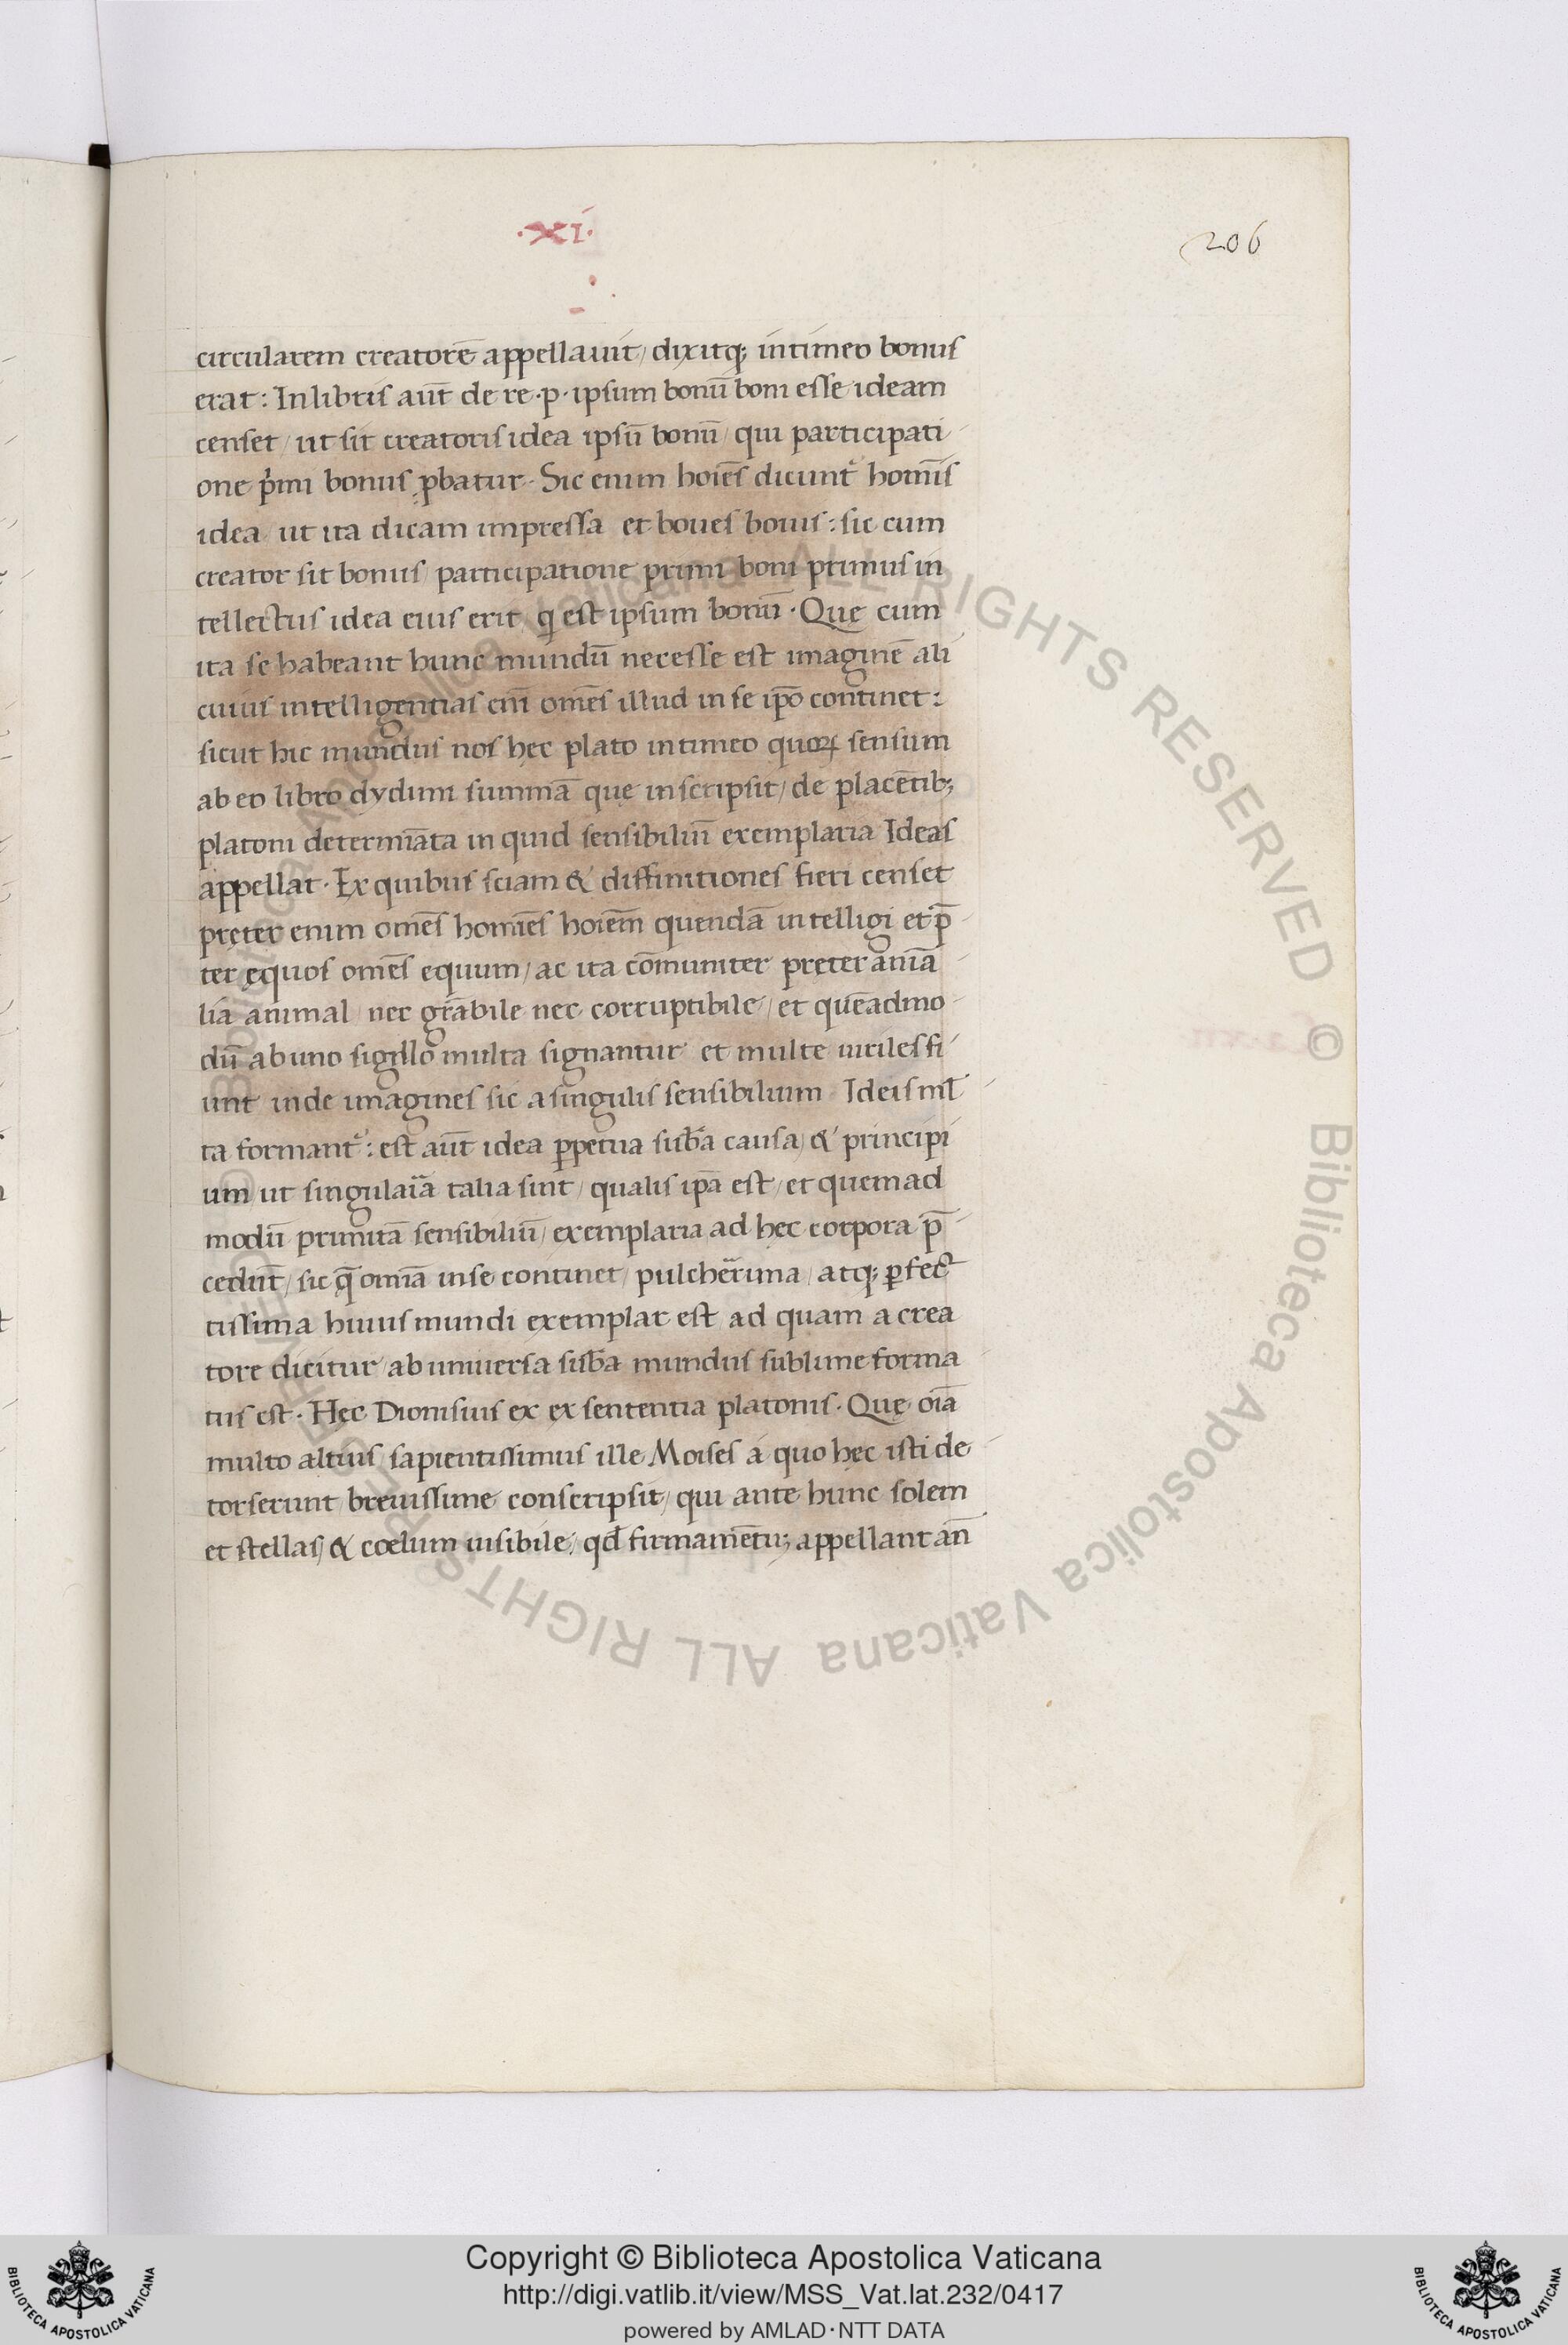 ·XI·
206
circularem creatorē appellauit/ dixitq; in timeo bonus
erat: In libris aūt de re·p· ipsum bonū boni esse ideam
censet/ ut sit creatoris idea ipsū bonū/ qui participati
one p̄mi bonus ꝓbatur. Sic enim hoīes dicunt᷑ homīs
idea/ ut ita dicam impressa et boues bouis: sic cum
creator sit bonus/ participatione primi boni primus in
tellectus idea eius erit/ q̄ est ipsum bonū. Quę cum
ita se habeant hunc mundū necesse est imaginē ali
cuius intelligentias enī omēs illud in se ip̄o continet:
sicut hic mundus nos hęc plato in timeo quoꝝ sensum
ab eo libro dydimi summā que inscripsit/ de placētib;
platoni determīata in quid sensibiliū exemplaria Ideas
appellat. Ex quibus sciam & diffinitiones fieri censet
pręter enim omēs homīes hoīem quendā intelligi et p̄
ter equos omēs equum/ ac ita cōmuniter pręter anīa
lia animal nec grābile nec corruptibile/ et quēadmo
dū ab uno sigillo multa signantur et multe uiriles fi
unt inde imagines sic a singulis sensibilium Ideis ml̄
ta formant᷑: est aūt idea ꝑpetua sub̄a causa/ & principi
um ut singulaīa talia sint/ qualis ip̄a est/ et quemad
modū primitā sensibiliū/ exemplaria ad hęc corpora p̄
cedūt/ sic q̄ omīa in se continet/ pulcherrima/ atq; ꝑfec
tissima huius mundi exemplar est ad quam a crea
tore dicitur/ ab uniuersa sub̄a mundus sublime forma
tus est. Hęc Dionisius ex ex sententia platonis. Quę oīa
multo altius sapientissimus ille Moises a quo hęc isti de
torserunt/ breuissime conscripsit/ qui ante hunc solem
et stellas/ & coelum uisibile/ qd̄ firmamētu; appellant an̄
© Biblioteca Apostolica Vaticana ALL RIGHTS RESERVED © Biblioteca Apostolica Vaticana ALL RIGHTS RESERVED
Copyright © Biblioteca Apostolica Vaticana
http://digi.vatlib.it/view/MSS_Vat.lat.232/0417
powered by AMLAD·NTT DATA
BIBLIOTECA APOSTOLICA VATICANA
BIBLIOTECA APOSTOLICA VATICANA